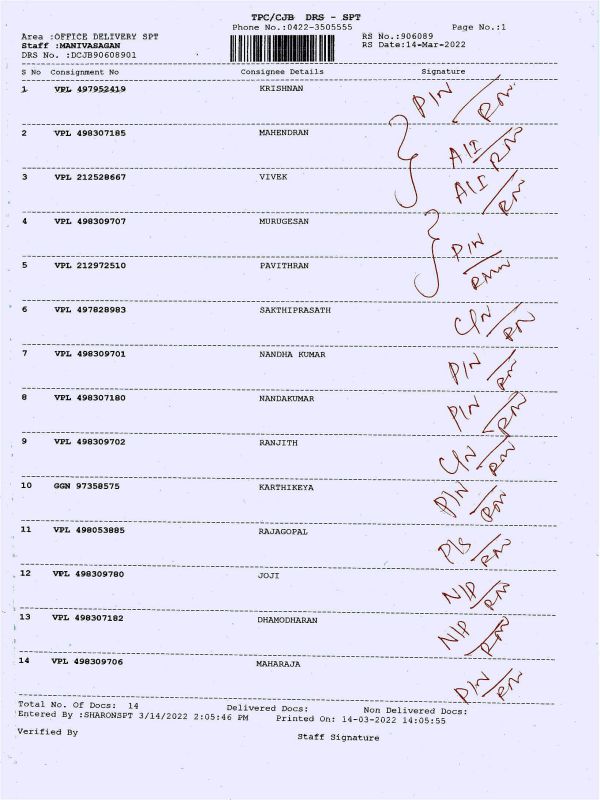 TPC/CJB DRS - SPT
Phone No.:0422-3505555 Page No.:1
Area :OFFICE DELIVERY SPT RS No.:906089
Staff :MANIVASAGAN RS Date:14-Mar-2022
DRS No. :DCJB90608901
S No Consignment No Consignee Details Signature
1 VPL 497952419 KRISHNAN P/N
2 VPL 498307185 MAHENDRAN
3 VPL 212528667 VIVEK
4 VPL 498309707 MURUGESAN P/N
5 VPL 212972510 PAVITHRAN
6 VPL 497828983 SAKTHIPRASATH C/N
7 VPL 498309701 NANDHA KUMAR P/N
8 VPL 498307180 NANDAKUMAR P/N
9 VPL 498309702 RANJITH C/N
10 GGN 97358575 KARTHIKEYA P/N
11 VPL 498053885 RAJAGOPAL
12 VPL 498309780 JOJI N/P
13 VPL 498307182 DHAMODHARAN N/P
14 VPL 498309706 MAHARAJA P/N
Total No. Of Docs: 14 Delivered Docs: Non Delivered Docs:
Entered By :SHARONSPT 3/14/2022 2:05:46 PM Printed On: 14-03-2022 14:05:55
Verified By Staff Signature